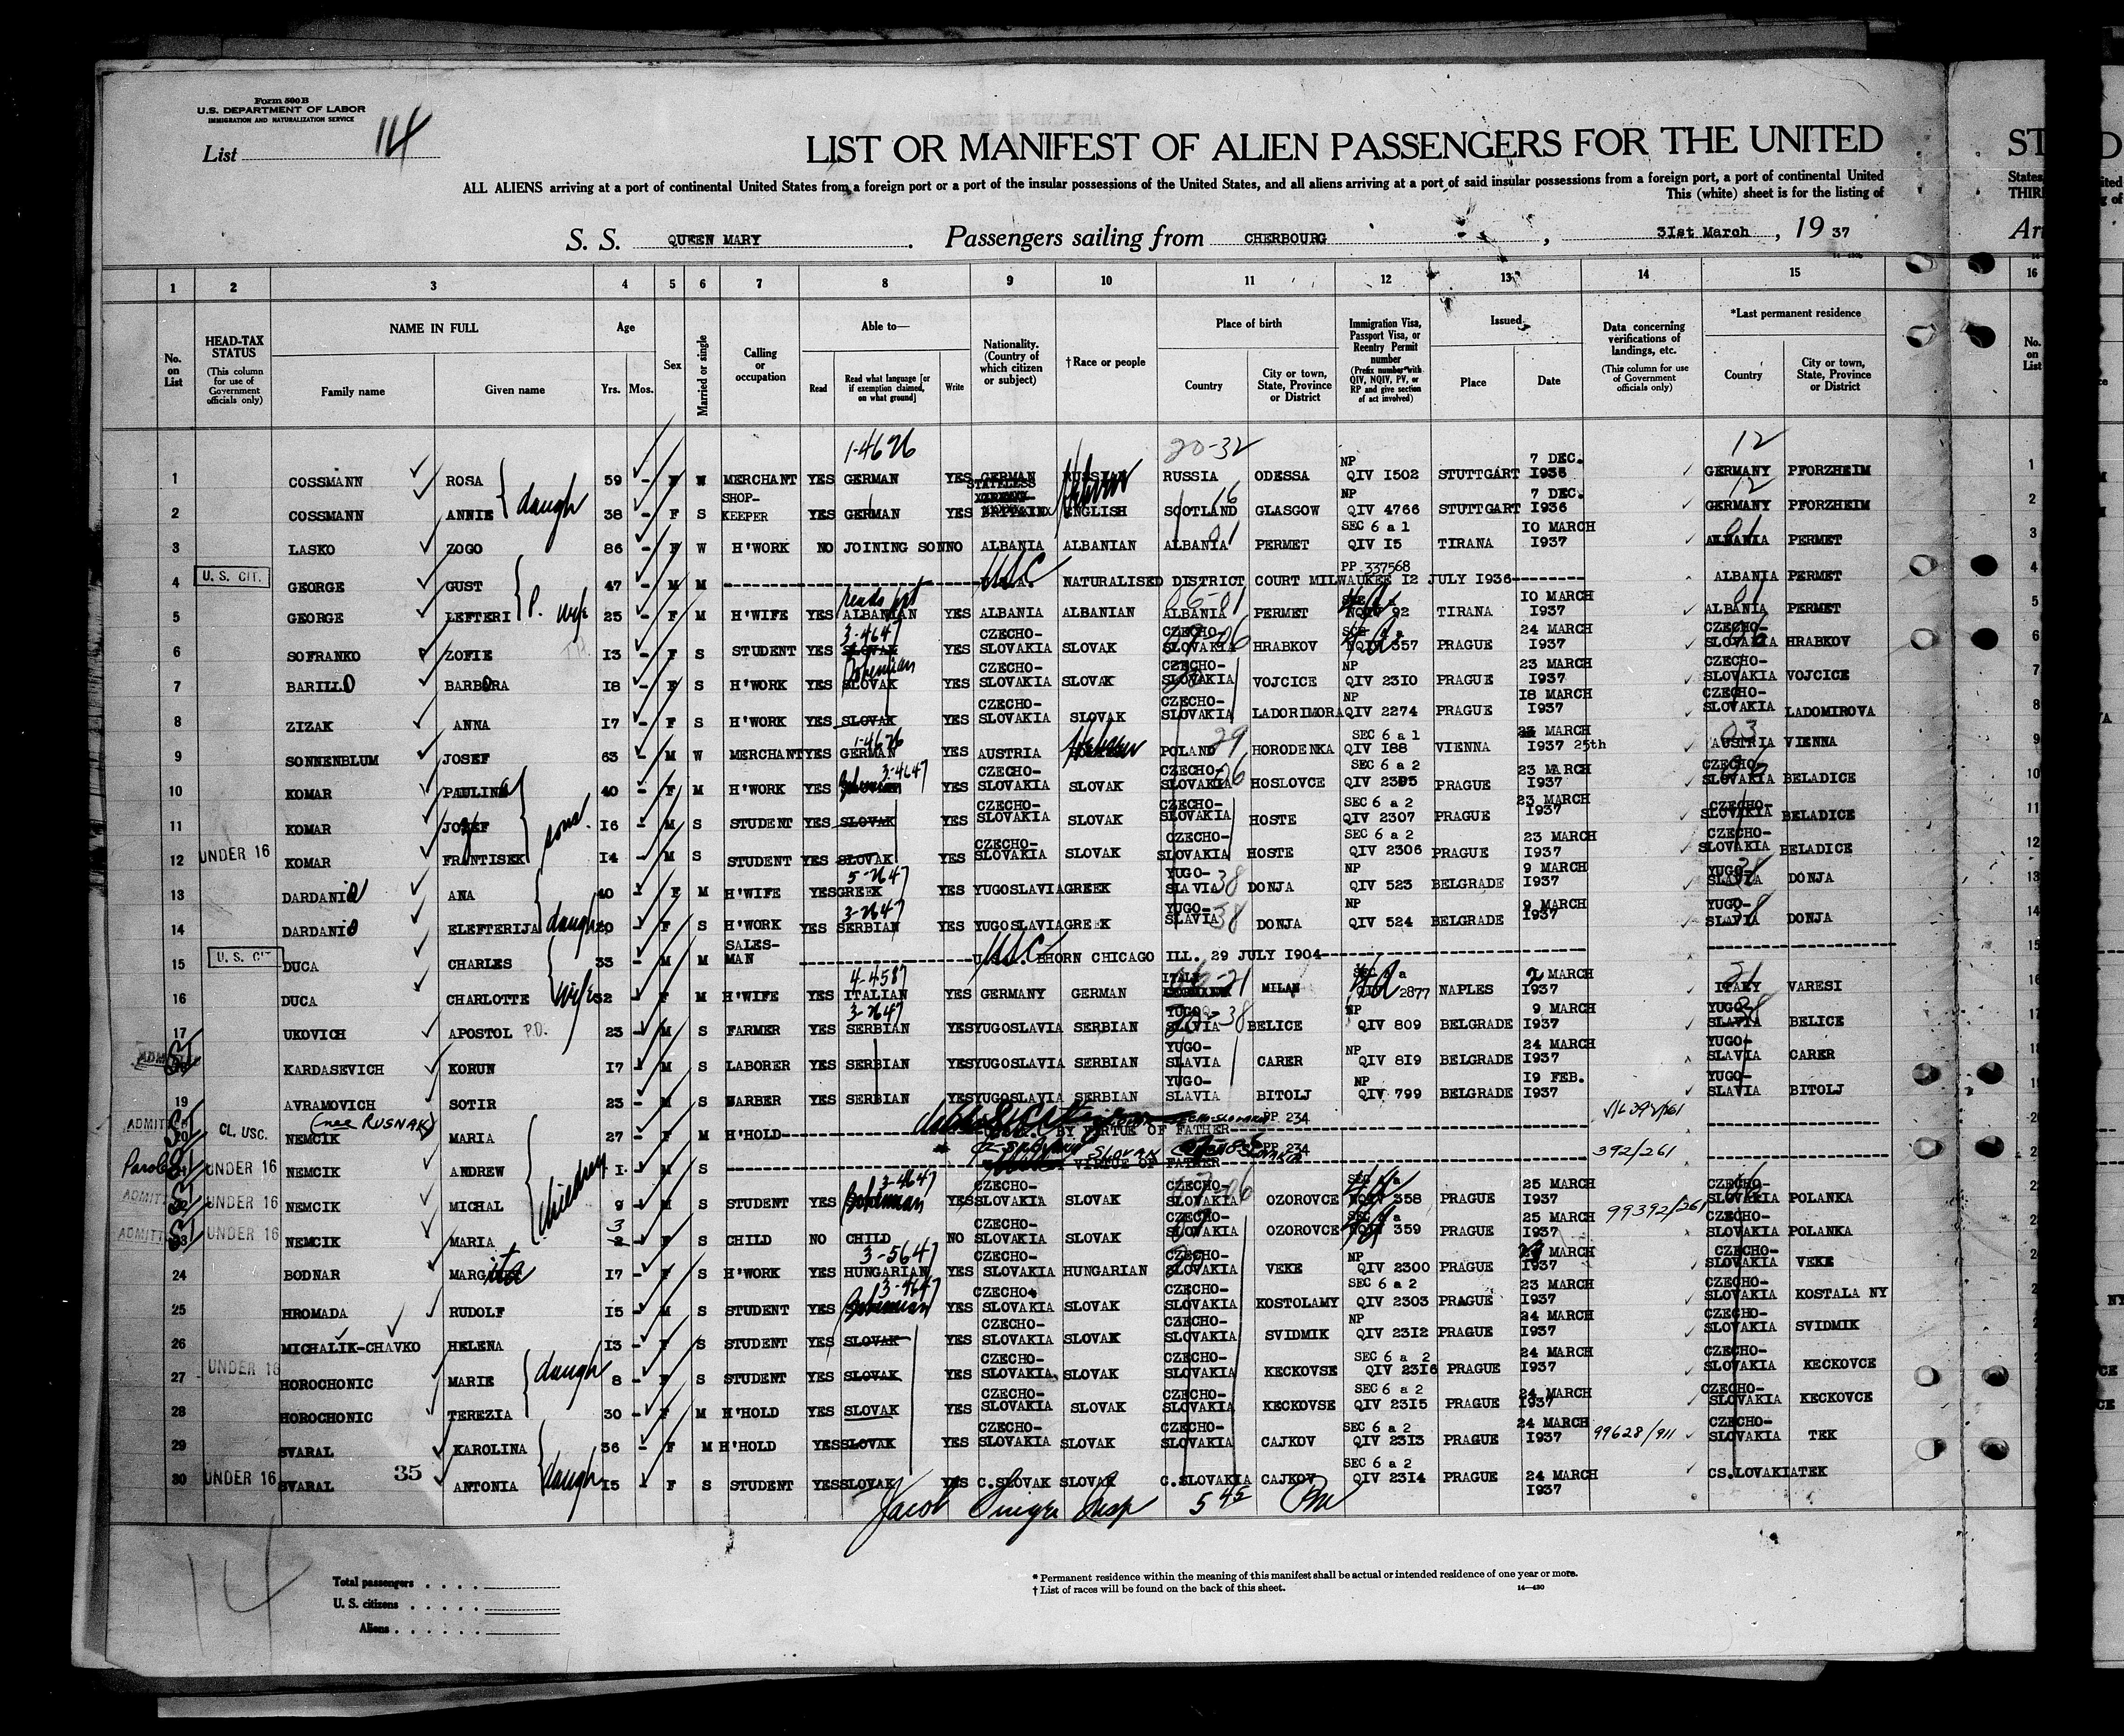 Form 500 B
U.S. DEPARTMENT OF LABOR
IMMIGRATION AND NATURALIZATION SERVICE
List 114
LIST OR MANIFEST OF ALIEN PASSENGERS FOR THE UNITED
ALL ALIENS arriving at a port of continental United States from a foreign port or a port of the insular possessions of the United States, and all aliens arriving at a port of said insular possessions from a foreign port, a port of continental United
This (white) sheet is for the listing of
S. S. QUEEN MARY. Passengers sailing from CHERBOURG, 31st March, 1937
1 2 3 4 5 6 7 8 9 10 11 12 13 14 15 16
No. on List
HEAD-TAX STATUS (This column for use of Government officials only)
NAME IN FULL Family name Given name
Age Yrs. Mos.
Sex
Married or single
Calling or occupation
Able to— Read Read what language [or if exemption claimed, on what ground] Write
Nationality. (Country of which citizen or subject)
†Race or people
Place of birth Country City or town, State, Province or District
Immigration Visa, Passport Visa, or Reentry Permit number (Prefix number with QIV, NQIV, PV, or RP and give section of act involved)
Issued Place Date
Data concerning verifications of landings, etc. (This column for use of Government officials only)
*Last permanent residence Country City or town, State, Province or District
No. on List
1-4676 20-32 12
1 COSSMANN ROSA 59 - F W MERCHANT YES GERMAN YES GERMAN RUSSIAN Hebrew RUSSIA ODESSA NP QIV 1502 STUTTGART 7 DEC. 1936 GERMANY PFORZHEIM
2 COSSMANN ANNIE daugh 38 - F S SHOP-KEEPER YES GERMAN YES STATELESS ENGLISH SCOTLAND 16 GLASGOW NP QIV 4766 STUTTGART 7 DEC. 1936 GERMANY 12 PFORZHEIM
3 LASKO ZOGO 86 - F W H'WORK NO JOINING SON NO ALBANIA ALBANIAN ALBANIA 01 PERMET SEC 6 a 1 QIV 15 TIRANA 10 MARCH 1937 ALBANIA 01 PERMET
4 U. S. CIT. GEORGE GUST 47 - M M USC NATURALISED DISTRICT COURT MILWAUKEE 12 JULY 1936 PP 337568 ALBANIA PERMET
5 GEORGE LEFTERI wife 25 - F M H'WIFE YES ALBANIAN YES ALBANIA ALBANIAN ALBANIA PERMET 92 TIRANA 10 MARCH 1937 ALBANIA 01 PERMET
6 SOFRANKO ZOFIE 13 - F S STUDENT YES SLOVAK 3-4647 Bohemian YES CZECHO-SLOVAKIA SLOVAK CZECHO-SLOVAKIA HRABKOV 357 PRAGUE 24 MARCH 1937 CZECHO-SLOVAKIA HRABKOV
7 BARILLO BARBORA 18 - F S H'WORK YES SLOVAK YES CZECHO-SLOVAKIA SLOVAK CZECHO-SLOVAKIA VOJCICE NP QIV 2310 PRAGUE 23 MARCH 1937 CZECHO-SLOVAKIA VOJCICE
8 ZIZAK ANNA 17 - F S H'WORK YES SLOVAK YES CZECHO-SLOVAKIA SLOVAK CZECHO-SLOVAKIA LADORIMORA NP QIV 2274 PRAGUE 18 MARCH 1937 CZECHO-SLOVAKIA LADOMIROVA
9 SONNENBLUM JOSEF 63 - M W MERCHANT YES 1-4676 GERMAN YES AUSTRIA Hebrew POLAND 29 HORODENKA SEC 6 a 1 QIV 188 VIENNA MARCH 1937 25th AUSTRIA 03 VIENNA
10 KOMAR PAULINA 40 - F M H'WORK YES Bohemian 3-4647 YES CZECHO-SLOVAKIA SLOVAK CZECHO-SLOVAKIA 06 HOSLOVCE SEC 6 a 2 QIV 2305 PRAGUE 23 MARCH 1937 CZECHO-SLOVAKIA BELADICE
11 KOMAR JOZEF sons 16 - M S STUDENT YES SLOVAK YES CZECHO-SLOVAKIA SLOVAK CZECHO-SLOVAKIA HOSTE SEC 6 a 2 QIV 2307 PRAGUE 23 MARCH 1937 CZECHO-SLOVAKIA BELADICE
12 UNDER 16 KOMAR FRANTISEK 14 - M S STUDENT YES SLOVAK YES CZECHO-SLOVAKIA SLOVAK CZECHO-SLOVAKIA HOSTE SEC 6 a 2 QIV 2306 PRAGUE 23 MARCH 1937 CZECHO-SLOVAKIA BELADICE
13 DARDANIO ANA 40 - F M H'WIFE YES 5-7647 GREEK YES YUGOSLAVIA GREEK YUGO-SLAVIA 38 DONJA NP QIV 523 BELGRADE 9 MARCH 1937 YUGO-SLAVIA 38 DONJA
14 DARDANIO ELEFTERIJA daugh 20 - F S H'WORK YES 3-7647 SERBIAN YES YUGOSLAVIA GREEK YUGO-SLAVIA 38 DONJA NP QIV 524 BELGRADE 9 MARCH 1937 YUGO-SLAVIA 38 DONJA
15 U. S. CIT DUCA CHARLES 33 - M M SALES-MAN USC BHORN CHICAGO ILL. 29 JULY 1904
16 DUCA CHARLOTTE wife 32 F M H'WIFE YES 4-4587 ITALIAN YES GERMANY GERMAN ITALY MILAN 2877 NAPLES MARCH 1937 ITALY 21 VARESI
17 UKOVICH APOSTOL P.D. 23 - M S FARMER YES 3-7647 SERBIAN YES YUGOSLAVIA SERBIAN YUGO-SLAVIA 38 BELICE NP QIV 809 BELGRADE 9 MARCH 1937 YUGO-SLAVIA 38 BELICE
KARDASEVICH KORUN 17 - M S LABORER YES SERBIAN YES YUGOSLAVIA SERBIAN YUGO-SLAVIA CARER NP QIV 819 BELGRADE 24 MARCH 1937 YUGO-SLAVIA CARER
19 AVRAMOVICH SOTIR 23 - M S BARBER YES SERBIAN YES YUGOSLAVIA SERBIAN YUGO-SLAVIA BITOLJ NP QIV 799 BELGRADE 19 FEB. 1937 YUGO-SLAVIA BITOLJ
ADMIT SI 20 CL. USC. (nee RUSNAK) NEMCIK MARIA 27 - F M H'HOLD BY VIRTUE OF FATHER PP 234
Parole SI UNDER 16 NEMCIK ANDREW 1 - M S SLOVAK VIRTUE OF FATHER PP 234 392/261
ADMIT SI UNDER 16 NEMCIK MICHAL children 9 - M S STUDENT YES Bohemian 3-4647 YES CZECHO-SLOVAKIA SLOVAK CZECHO-SLOVAKIA 06 OZOROVCE 358 PRAGUE 25 MARCH 1937 99392/261 CZECHO-SLOVAKIA POLANKA
ADMIT SI UNDER 16 NEMCIK MARIA 3 F S CHILD NO CHILD NO CZECHO-SLOVAKIA SLOVAK CZECHO-SLOVAKIA OZOROVCE 359 PRAGUE 25 MARCH 1937 CZECHO-SLOVAKIA POLANKA
24 BODNAR MARGITA 17 - F S H'WORK YES 3-5647 HUNGARIAN YES CZECHO-SLOVAKIA HUNGARIAN CZECHO-SLOVAKIA VEKE NP QIV 2300 PRAGUE MARCH 1937 CZECHO-SLOVAKIA VEKE
25 HROMADA RUDOLF 15 - M S STUDENT YES Bohemian 3-4647 YES CZECHO-SLOVAKIA SLOVAK CZECHO-SLOVAKIA KOSTOLAMY SEC 6 a 2 QIV 2303 PRAGUE 23 MARCH 1937 CZECHO-SLOVAKIA KOSTALA NY
26 MICHALIK-CHAVKO HELENA 13 - F S STUDENT YES SLOVAK YES CZECHO-SLOVAKIA SLOVAK CZECHO-SLOVAKIA SVIDMIK NP QIV 2312 PRAGUE 24 MARCH 1937 CZECHO-SLOVAKIA SVIDMIK
27 UNDER 16 HOROCHONIC MARIE daugh 8 - F S STUDENT YES SLOVAK YES CZECHO-SLOVAKIA SLOVAK CZECHO-SLOVAKIA KECKOVSE SEC 6 a 2 QIV 2316 PRAGUE 24 MARCH 1937 CZECHO-SLOVAKIA KECKOVCE
28 HOROCHONIC TEREZIA 30 - F M H'HOLD YES SLOVAK YES CZECHO-SLOVAKIA SLOVAK CZECHO-SLOVAKIA KECKOVSE SEC 6 a 2 QIV 2315 PRAGUE 24 MARCH 1937 CZECHO-SLOVAKIA KECKOVCE
29 SVARAL KAROLINA 36 - F M H'HOLD YES SLOVAK YES CZECHO-SLOVAKIA SLOVAK CZECHO-SLOVAKIA CAJKOV SEC 6 a 2 QIV 2313 PRAGUE 24 MARCH 1937 99628/911 CZECHO-SLOVAKIA TEK
30 UNDER 16 SVARAL 35 ANTONIA daugh 15 F S STUDENT YES SLOVAK YES C.SLOVAK SLOVAK C.SLOVAKIA CAJKOV SEC 6 a 2 QIV 2314 PRAGUE 24 MARCH 1937 CS.LOVAKIA TEK
Jacob Insp 5 45 PM
14
Total passengers
U. S. citizens
Aliens
* Permanent residence within the meaning of this manifest shall be actual or intended residence of one year or more.
† List of races will be found on the back of this sheet. 14—430